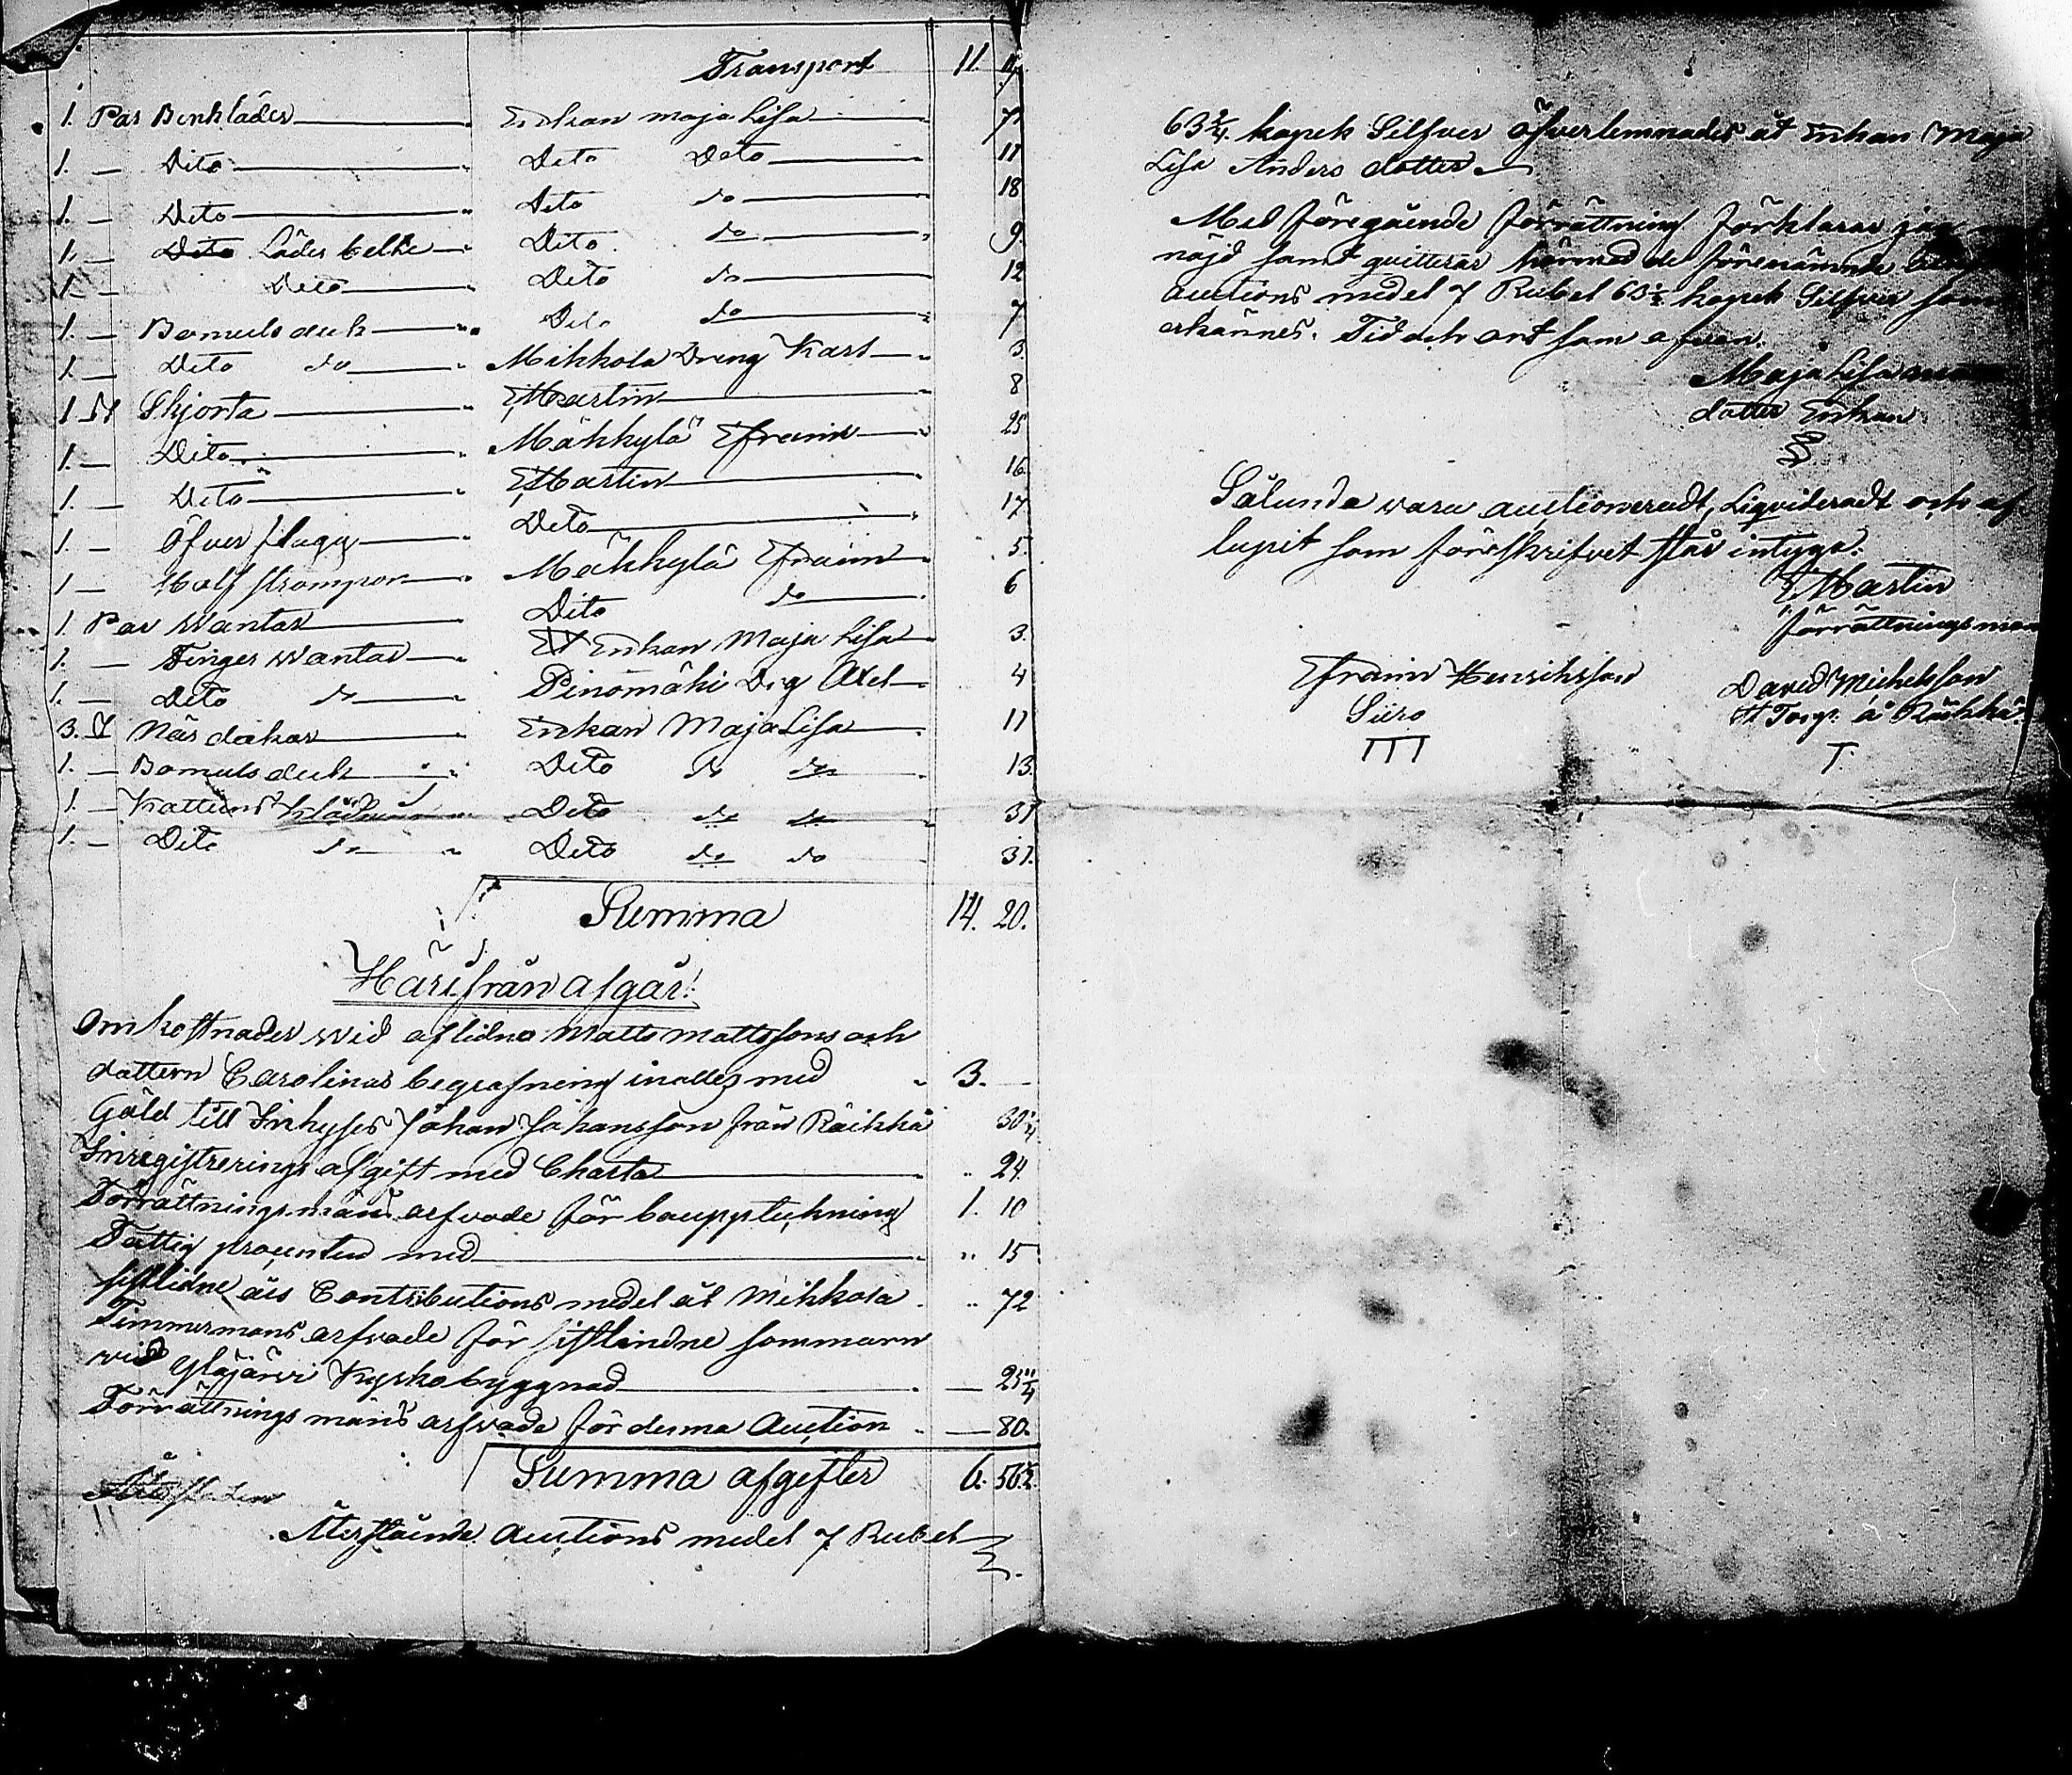 Transport 11.
1. Par Benkläder Enkan Maja Lisa 71
1. — Dito Dito Dito 11
1. — Dito Dito do 18
1. — Läder belte Dito do 9.
1. — Dito Dito do 12
1. — Bomuls duk Dito do 7
1. — Dito do Mikkola Dreng Karl 3.
1. St Skjorta E Martin 8
1. — Dito Mäkkylä Efraim 25
1. — Dito E Martin 16.
1. — Öfver plagg Dito 17
1 — Half strumpor Mäkkylä Efraim 5.
1. Par Wantar Dito do 6
1. — Finger Wantar Enkan Maja Lisa 3.
1. — Dito do Pinomäki Drg Axel 4
3. St Näs dukar Enkan Maja Lisa 11
1. — Bomuls duk Dito do do 13.
1. — Kattuns Klädning Dito do do 31
1. — Dito do Dito do do 31.
Summa 14. 20.
Härifrån afgår!
Omkostnader wid aflidna Matts Mattssons och
dottern Carolinas begrafning inalles med 3. —
Gäld till Inhyses Johan Johansson från Räikkä 30 1/4
Inregistrerings afgift med Charta 24.
Förrättningsmäns arfvode för bouppteckning 1. 10
Fattig procenten med 15
sistlidne års Contributions medel åt Mikkola 72
Timmermans arfvode för sistlindne sommarn
wid Ylöjärvi Kyrkobyggnad 25 1/4
Förrättnings mäns arfvode för denna Auction — 80.
Summa afgifter 6. 56 1/2.
Återstående Auctions medel 7 Rubel
63 3/4. kopek Silfver öfverlemnades åt Enkan Maja
Lisa Anders dotter
Med föregående förrättning förklarar jag
nöjd samt qvitterar härmed de förenämnde
Auctions medel 7 Rubel 63 1/2 kopek Silfver som
erkännes. Tid och ort som ofvan.
Maja Lisa
dotter Enkan
Sålunda vara auctioneradt, Liqvideradt och af
lupit som föreskrifvet står intyga.
E Martin
förrättningsman
Efraim Henriksson David Michelsson
Siiro Torp. å Räikkä.